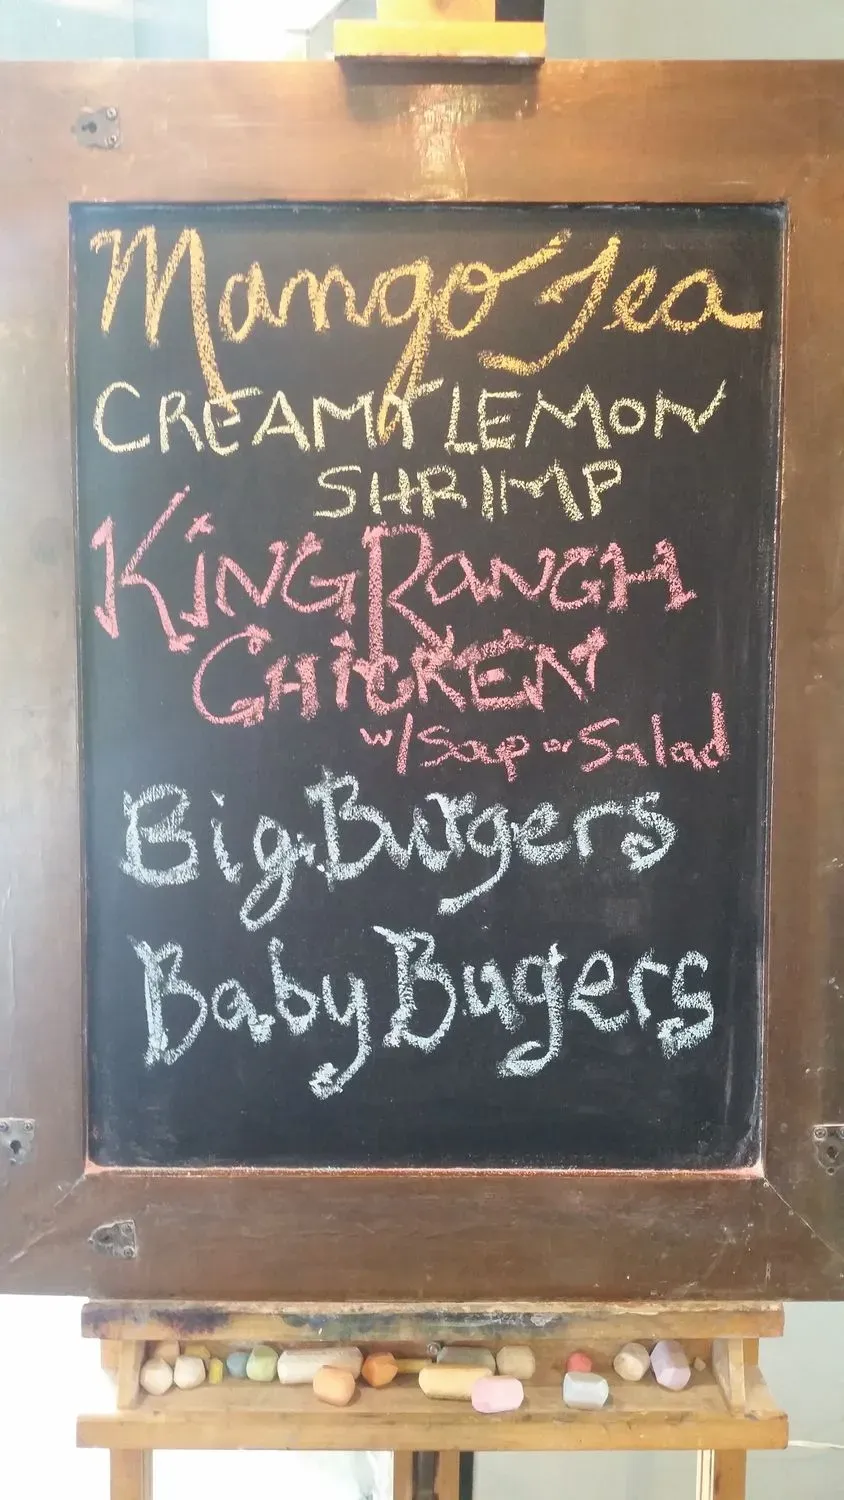 Mango Tea
CREAMY LEMON
SHRIMP
KiNG RaNCH
CHiCKEN
w/Soup or Salad
Big Burgers
Baby Bugers